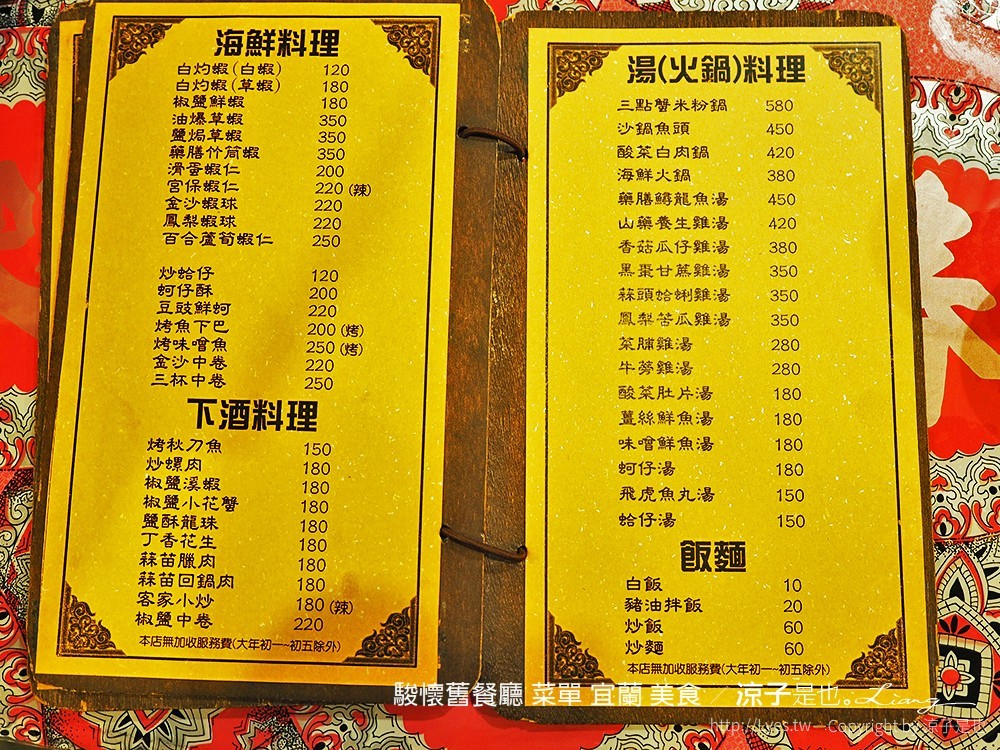 海鮮料理
白灼蝦(白蝦) 120
白灼蝦(草蝦) 180
椒鹽鮮蝦 180
油爆草蝦 350
鹽焗草蝦 350
藥膳竹筒蝦 350
滑蛋蝦仁 200
宮保蝦仁 220 (辣)
金沙蝦球 220
鳳梨蝦球 220
百合蘆筍蝦仁 250
炒蛤仔 120
蚵仔酥 200
豆豉鮮蚵 220
烤魚下巴 200 (烤)
烤味噌魚 250 (烤)
金沙中卷 220
三杯中卷 250
下酒料理
烤秋刀魚 150
炒螺肉 180
椒鹽溪蝦 180
椒鹽小花蟹 180
鹽酥龍珠 180
丁香花生 180
蒜苗臘肉 180
蒜苗回鍋肉 180
客家小炒 180 (辣)
椒鹽中卷 220
本店無加收服務費(大年初一~初五除外)
湯(火鍋)料理
三點蟹米粉鍋 580
沙鍋魚頭 450
酸菜白肉鍋 420
海鮮火鍋 380
藥膳鱘龍魚湯 450
山藥養生雞湯 420
香菇瓜仔雞湯 380
黑棗甘蔗雞湯 350
蒜頭蛤蜊雞湯 350
鳳梨苦瓜雞湯 350
菜脯雞湯 280
牛蒡雞湯 280
酸菜肚片湯 180
薑絲鮮魚湯 180
味噌鮮魚湯 180
蚵仔湯 180
飛虎魚丸湯 150
蛤仔湯 150
飯麵
白飯 10
豬油拌飯 20
炒飯 60
炒麵 60
本店無加收服務費(大年初一~初五除外)
駿懷舊餐廳 菜單 宜蘭 美食 / 涼子是也。Liang